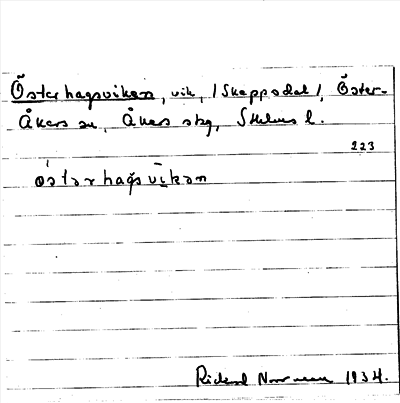 Österhagsviken, vik, /Skeppsdal/, Öster-
Åkers sn, Åkers skg, Sthlms l.
223
östərhagsvikən
Rickard Norrman 1934.